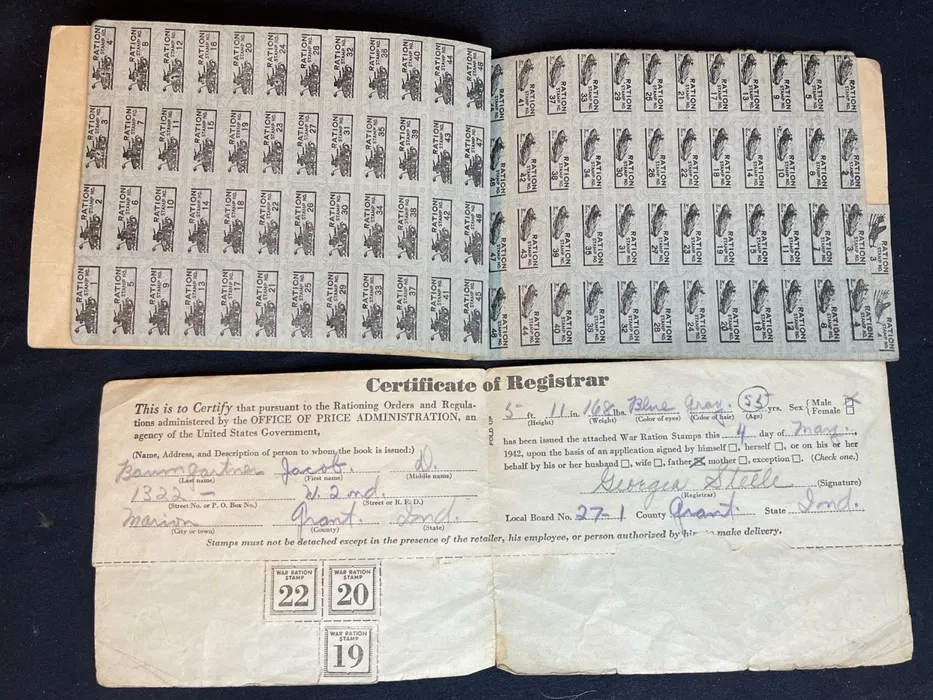 RATION STAMP NO. 4
RATION STAMP NO. 8
RATION STAMP NO. 12
RATION STAMP NO. 16
RATION STAMP NO. 20
RATION STAMP NO. 24
RATION STAMP NO. 28
RATION STAMP NO. 32
RATION STAMP NO. 36
RATION STAMP NO. 40
RATION STAMP NO. 44
RATION STAMP NO. 48
RATION STAMP NO. 3
RATION STAMP NO. 7
RATION STAMP NO. 11
RATION STAMP NO. 15
RATION STAMP NO. 19
RATION STAMP NO. 23
RATION STAMP NO. 27
RATION STAMP NO. 31
RATION STAMP NO. 35
RATION STAMP NO. 39
RATION STAMP NO. 43
RATION STAMP NO. 47
RATION STAMP NO. 2
RATION STAMP NO. 6
RATION STAMP NO. 10
RATION STAMP NO. 14
RATION STAMP NO. 18
RATION STAMP NO. 22
RATION STAMP NO. 26
RATION STAMP NO. 30
RATION STAMP NO. 34
RATION STAMP NO. 38
RATION STAMP NO. 42
RATION STAMP NO. 46
RATION STAMP NO.
RATION STAMP NO. 5
RATION STAMP NO. 9
RATION STAMP NO. 13
RATION STAMP NO. 17
RATION STAMP NO. 21
RATION STAMP NO. 25
RATION STAMP NO. 29
RATION STAMP NO. 33
RATION STAMP NO. 37
RATION STAMP NO. 41
RATION STAMP NO. 45
RATION STAMP NO. 41
RATION STAMP NO. 37
RATION STAMP NO. 33
RATION STAMP NO. 29
RATION STAMP NO. 25
RATION STAMP NO. 21
RATION STAMP NO. 17
RATION STAMP NO. 13
RATION STAMP NO. 9
RATION STAMP NO. 5
RATION STAMP NO. 1
RATION STAMP NO. 42
RATION STAMP NO. 38
RATION STAMP NO. 34
RATION STAMP NO. 30
RATION STAMP NO. 26
RATION STAMP NO. 22
RATION STAMP NO. 18
RATION STAMP NO. 14
RATION STAMP NO. 10
RATION STAMP NO. 6
RATION STAMP NO. 2
RATION STAMP NO. 47
RATION STAMP NO. 43
RATION STAMP NO. 39
RATION STAMP NO. 35
RATION STAMP NO. 31
RATION STAMP NO. 27
RATION STAMP NO. 23
RATION STAMP NO. 19
RATION STAMP NO. 15
RATION STAMP NO. 11
RATION STAMP NO. 7
RATION STAMP NO. 3
RATION STAMP NO. 3
RATION STAMP NO. 48
RATION STAMP NO. 44
RATION STAMP NO. 40
RATION STAMP NO. 36
RATION STAMP NO. 32
RATION STAMP NO. 28
RATION STAMP NO. 24
RATION STAMP NO. 20
RATION STAMP NO. 16
RATION STAMP NO. 12
RATION STAMP NO. 8
RATION STAMP NO. 4
RATION STAMP NO. 4
Certificate of Registrar
This is to Certify that pursuant to the Rationing Orders and Regula-
tions administered by the OFFICE OF PRICE ADMINISTRATION, an
agency of the United States Government,
(Name, Address, and Description of person to whom the book is issued:)
Baumgartner Jacob. D.
(Last name) (First name) (Middle name)
1322 - W. 2nd.
(Street No. or P. O. Box No.) (Street or R. F. D.)
Marion Grant. Ind.
(City or town) (County) (State)
FOLD UP
5 ft. 11 in. 168 lbs. Blue Gray. 55 yrs. Sex Male Female
(Height) (Weight) (Color of eyes) (Color of hair) (Age)
has been issued the attached War Ration Stamps this 4 day of May.,
1942, upon the basis of an application signed by himself, herself, or on his or her
behalf by his or her husband, wife, father, mother, exception. (Check one.)
Georgia Steele (Signature)
(Registrar)
Local Board No. 27-1 County Grant. State Ind.
Stamps must not be detached except in the presence of the retailer, his employee, or person authorized by him to make delivery.
WAR RATION STAMP 22
WAR RATION STAMP 20
WAR RATION STAMP 19